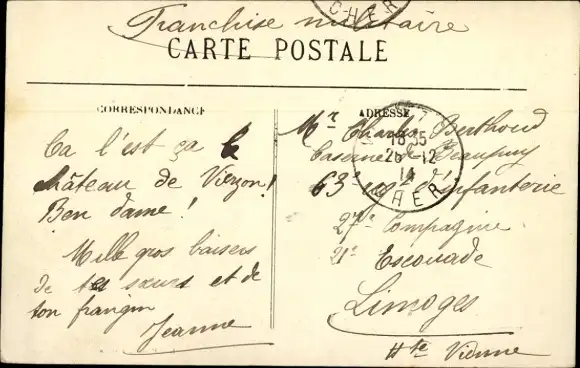 Franchise militaire
CHER
CARTE POSTALE
CORRESPONDANCE
Ca l'est ça le
château de Vierzon!
Ben dame!
Mille gros baisers
de tes sœurs et de
ton frangin
Jeanne
ADRESSE
Mr Charles Berthoud
Caserne de Beaupuy
63e rgt d'Infanterie
27e Compagnie
21e Escouade
Limoges
Hte Vienne
18 35
26-12
14
CHER